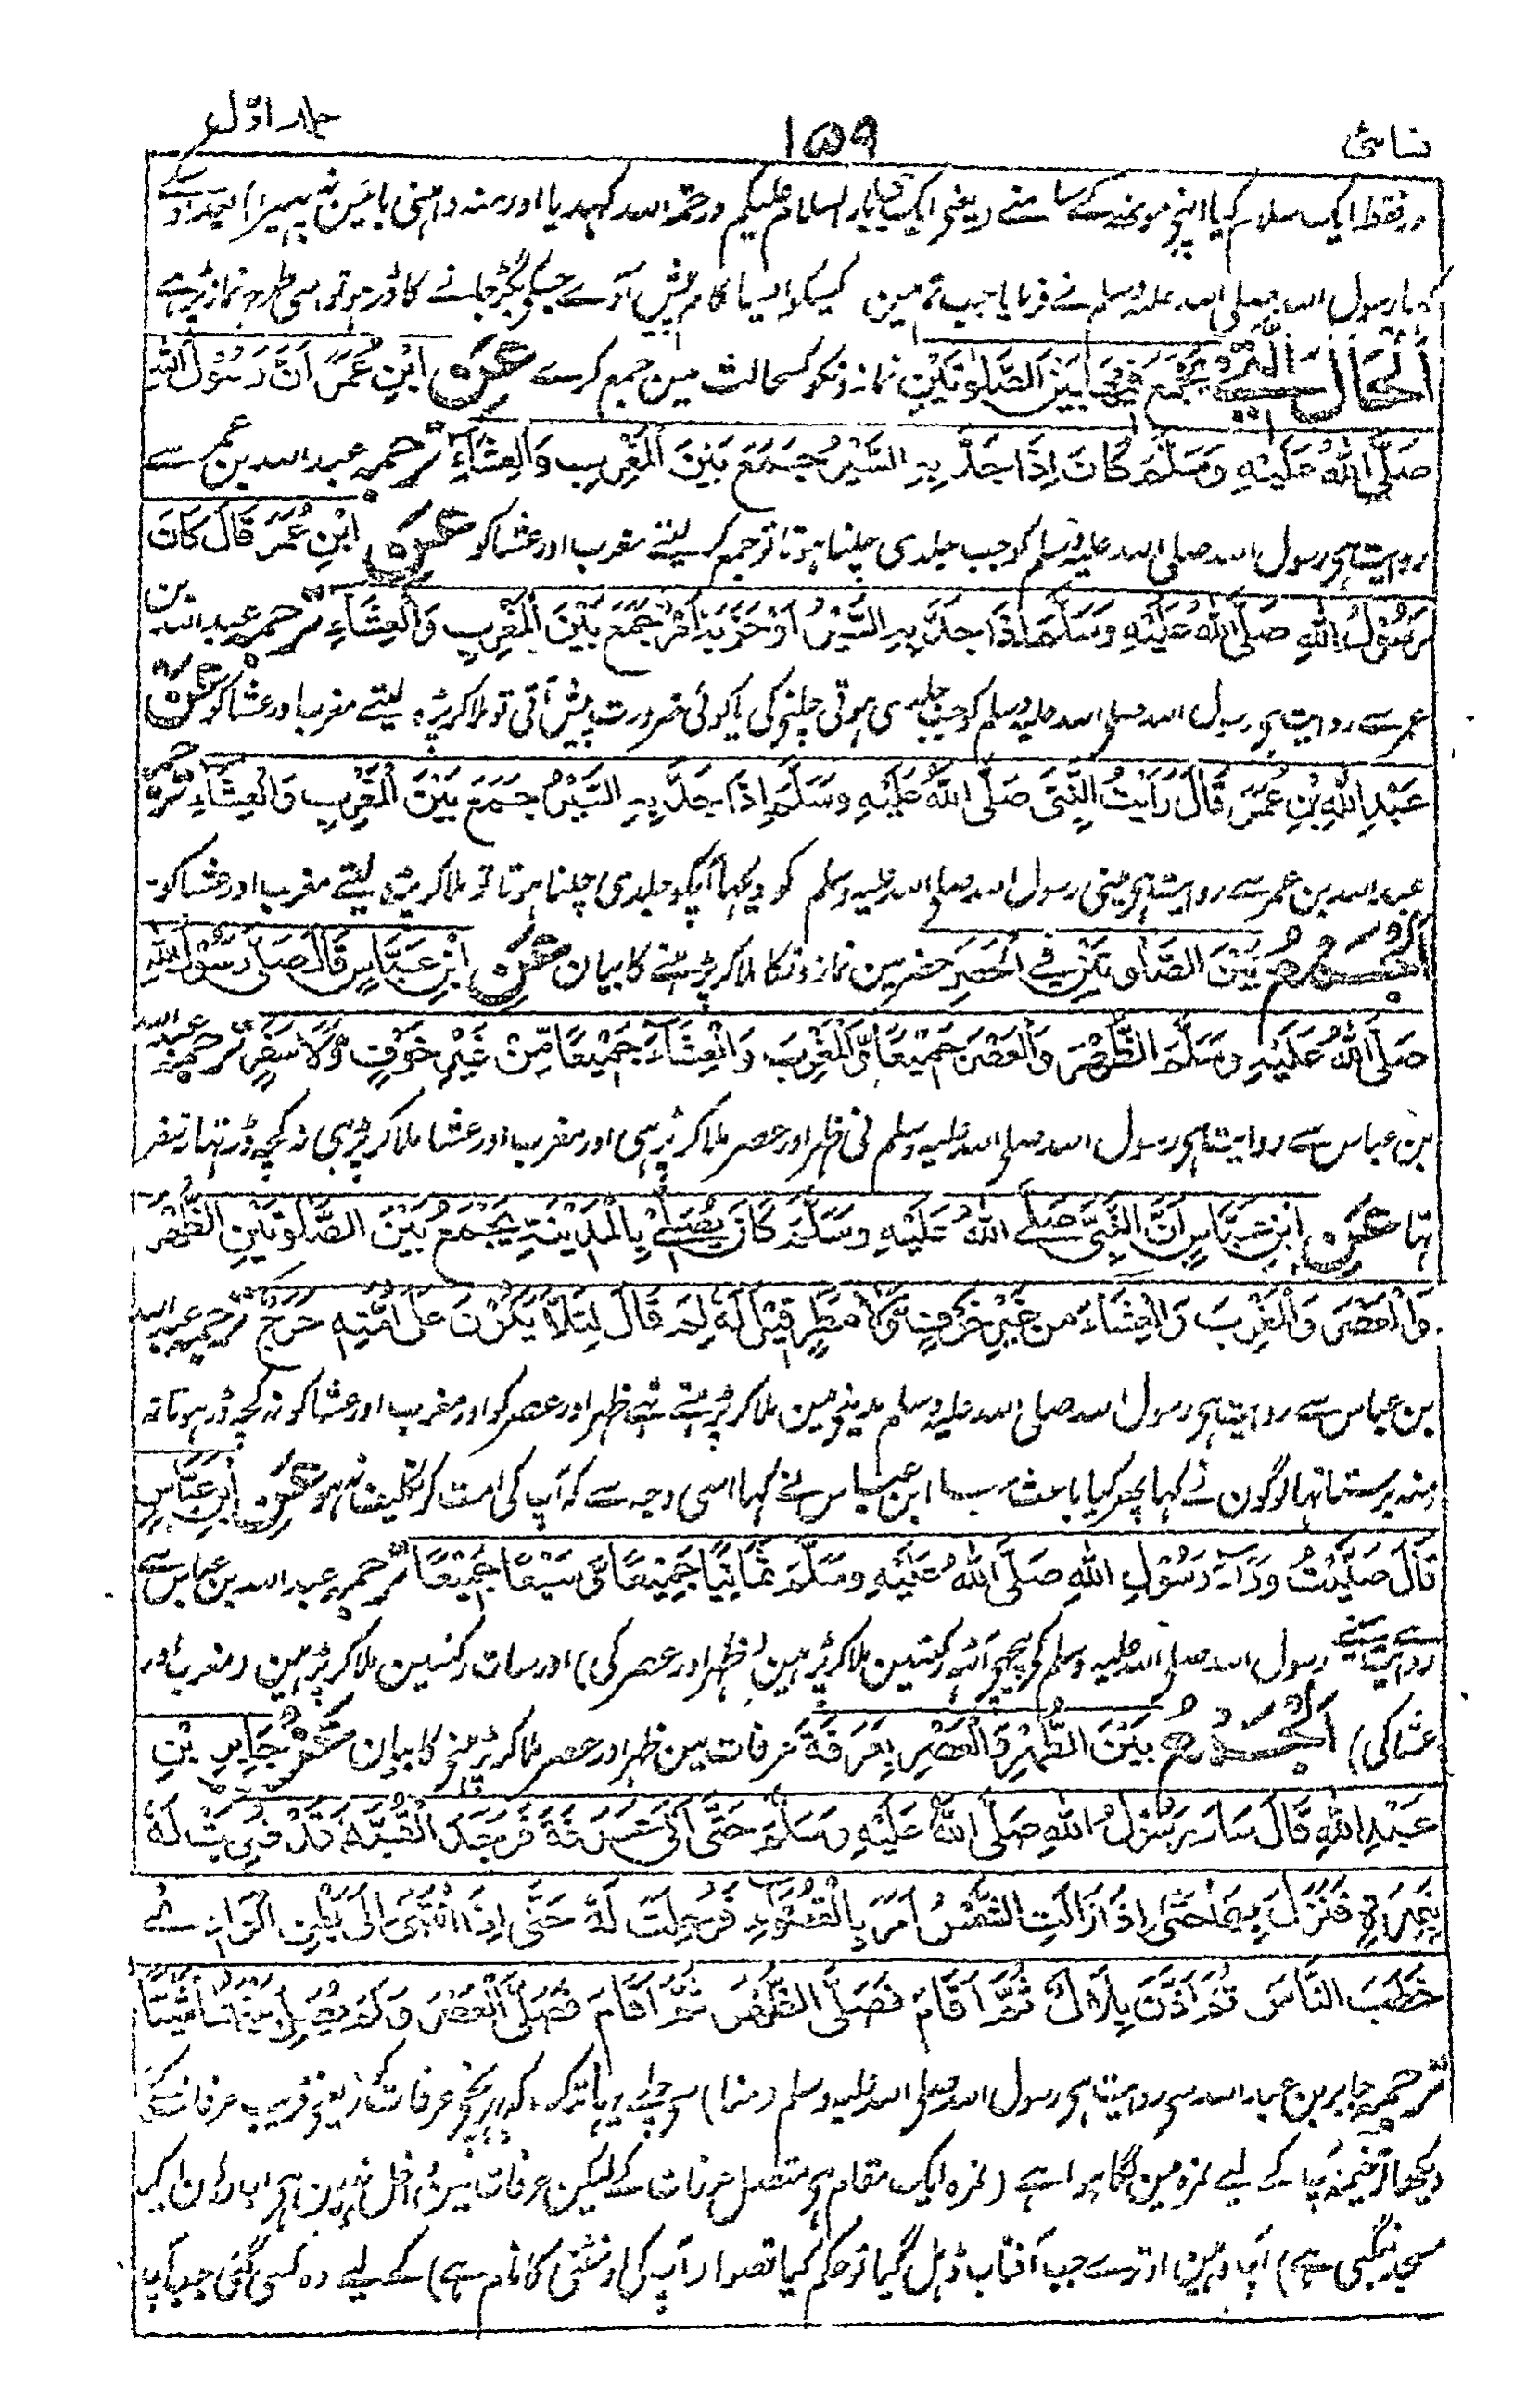 نسائی ۱۵۹ جلد اوّل
فقط ایک سلام کہا اپنے مونہہ کے سامنے (یعنی ایک بار السلام علیکم ورحمۃ اللہ کہدیا اور منہ داہنی بائین نہ پہیرا) بعد اوسکے
کہا رسول اللہ صلی اللہ علیہ وسلم نے فرمایا جب تم مین کسیکو ایسا کام پیش آوے جسکے بگڑ جانے کا ڈر ہو تو اسی طرح نماز پڑہے
اَلْحَالُ الَّتِیْ یُجْمَعُ فِیْهَا بَیْنَ الصَّلٰوتَیْنِ نمازونکو کس حالت مین جمع کرے عَنِ ابْنِ عُمَرَ اَنَّ رَسُوْلَ اللهِ
صَلَّی اللهُ عَلَیْهِ وَسَلَّمَ کَانَ اِذَا جَدَّ بِهِ السَّیْرُ جَمَعَ بَیْنَ الْمَغْرِبِ وَالْعِشَآءِ ترجمہ عبد اللہ بن عمر سے
روایت ہے رسول اللہ صلی اللہ علیہ وسلم کو جب جلدی چلنا ہوتا تو جمع کر لیتے مغرب اور عشا کو عَنِ ابْنِ عُمَرَ قَالَ کَانَ
رَسُوْلُ اللهِ صَلَّی اللهُ عَلَیْهِ وَسَلَّمَ اِذَا جَدَّ بِهِ السَّیْرُ اَوْ حَزَبَهٗ اَمْرٌ جَمَعَ بَیْنَ الْمَغْرِبِ وَالْعِشَآءِ ترجمہ عبد اللہ بن
عمر سے روایت ہے رسول اللہ صلی اللہ علیہ وسلم کو جب جلدی ہوتی چلنے کی یا کوئی ضرورت پیش آتی تو ملا کر پڑہ لیتے مغرب اور عشا کو عَنْ
عَبْدِ اللهِ بْنِ عُمَرَ قَالَ رَاَیْتُ النَّبِیَّ صَلَّی اللهُ عَلَیْهِ وَسَلَّمَ اِذَا جَدَّ بِهِ السَّیْرُ جَمَعَ بَیْنَ الْمَغْرِبِ وَالْعِشَآءِ ترجمہ
عبد اللہ بن عمر سے روایت ہے مینی رسول اللہ صلی اللہ علیہ وسلم کو دیکہا آپکو جلدی چلنا ہوتا تو ملا کر پڑہ لیتے مغرب اور عشا کو
اَلْجَمْعُ بَیْنَ الصَّلٰوتَیْنِ فِی الْحَضَرِ حضر مین نمازونکا ملا کر پڑہنے کا بیان عَنِ ابْنِ عَبَّاسٍ قَالَ صَلّٰی رَسُوْلُ اللهِ
صَلَّی اللهُ عَلَیْهِ وَسَلَّمَ الظُّهْرَ وَالْعَصْرَ جَمِیْعًا وَّالْمَغْرِبَ وَالْعِشَآءَ جَمِیْعًا مِّنْ غَیْرِ خَوْفٍ وَّلَا سَفَرٍ ترجمہ عبد اللہ
بن عباس سے روایت ہے رسول اللہ صلی اللہ علیہ وسلم نی ظہر اور عصر ملا کر پڑہی اور مغرب اور عشا ملا کر پڑہی نہ کچہ ڈر تہا نہ سفر
تہا عَنِ ابْنِ عَبَّاسٍ اَنَّ النَّبِیَّ صَلَّی اللهُ عَلَیْهِ وَسَلَّمَ کَانَ یُصَلِّیْ بِالْمَدِیْنَةِ یَجْمَعُ بَیْنَ الصَّلٰوتَیْنِ الظُّهْرِ
وَالْعَصْرِ وَالْمَغْرِبِ وَالْعِشَآءِ مِنْ غَیْرِ خَوْفٍ وَّلَا مَطَرٍ قِیْلَ لَهٗ لِمَ قَالَ لِئَلَّا یَکُوْنَ عَلٰی اُمَّتِهٖ حَرَجٌ ترجمہ عبد اللہ
بن عباس سے روایت ہے رسول اللہ صلی اللہ علیہ وسلم مدینے مین ملا کر پڑہتے تہے ظہر اور عصر کو اور مغرب اور عشا کو نہ کچہ ڈر ہوتا نہ
مینہ برستا تہا لوگون نے کہا پہر کیا باعث ابن عباس نے کہا اسی وجہ سے کہ آپ کی امت کو تکلیف نہو عَنِ ابْنِ عَبَّاسٍ
قَالَ صَلَّیْتُ وَرَآءَ رَسُوْلِ اللهِ صَلَّی اللهُ عَلَیْهِ وَسَلَّمَ ثَمَانِیًا جَمِیْعًا وَّسَبْعًا جَمِیْعًا ترجمہ عبد اللہ بن عباس سے
روایت ہے مینے رسول اللہ صلی اللہ علیہ وسلم کے پیچہے آٹہ رکعتین ملا کر پڑہین (ظہر اور عصر کی) اور سات رکعتین ملا کر پڑہین (مغرب اور
عشا کی) اَلْجَمْعُ بَیْنَ الظُّهْرِ وَالْعَصْرِ بِعَرَفَةَ عرفات مین ظہر اور عصر ملا کر پڑہنے کا بیان عَنْ جَابِرِ بْنِ
عَبْدِ اللهِ قَالَ سَارَ رَسُوْلُ اللهِ صَلَّی اللهُ عَلَیْهِ وَسَلَّمَ حَتّٰی اَتٰی عَرَفَةَ فَوَجَدَ الْقُبَّةَ قَدْ ضُرِبَتْ لَهٗ
بِنَمِرَةٍ فَنَزَلَ بِهَا حَتّٰی اِذَا زَالَتِ الشَّمْسُ اَمَرَ بِالْقَصْوَآءِ فَرُحِلَتْ لَهٗ حَتّٰی اِذَا انْتَهٰی اِلٰی بَطْنِ الْوَادِیْ
خَطَبَ النَّاسَ ثُمَّ اَذَّنَ بِلَالٌ ثُمَّ اَقَامَ فَصَلَّی الظُّهْرَ ثُمَّ اَقَامَ فَصَلَّی الْعَصْرَ وَلَمْ یُصَلِّ بَیْنَهُمَا شَیْئًا
ترجمہ جابر بن عبد اللہ سے روایت ہے رسول اللہ صلی اللہ علیہ وسلم (منا) سے چلے یہانتک کہ پہنچے عرفات کو (یعنی قریب عرفات کے)
دیکہا تو خیمہ آپ کے لیے نمرہ مین لگا ہوا ہے (نمرہ ایک مقام ہے متصل عرفات کے لیکن عرفات مین داخل نہین ہے اب وہان ایک
مسجد بنگئی ہے) آپ وہین اوترے جب آفتاب ڈہل گیا تو حکم کیا قصوا (آپ کی اونٹنی کا نام ہے) کے لیے وہ کسی گئی جب آپ